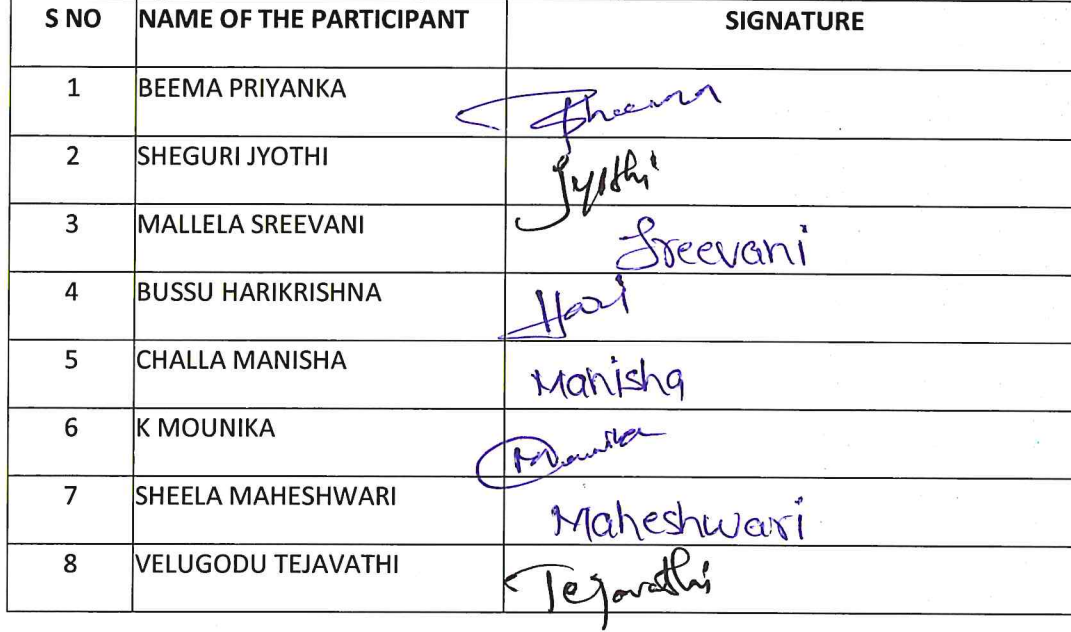 S NO NAME OF THE PARTICIPANT SIGNATURE
1 BEEMA PRIYANKA Bheema
2 SHEGURI JYOTHI Jyothi
3 MALLELA SREEVANI Sreevani
4 BUSSU HARIKRISHNA Hari
5 CHALLA MANISHA Manisha
6 K MOUNIKA Mounika
7 SHEELA MAHESHWARI Maheshwari
8 VELUGODU TEJAVATHI Tejavathi